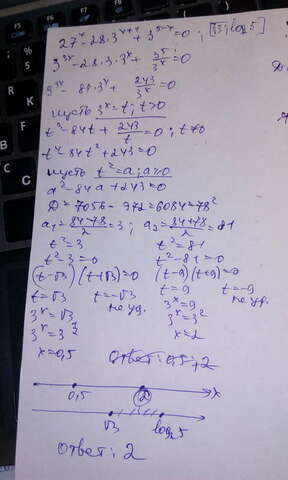 27^x - 28·3^{x+1} + 3^{5-x} = 0 ; [√3; log₂5]
3^{3x} - 28·3·3^x + 3^5/3^x = 0
3^{3x} - 84·3^x + 243/3^x = 0
пусть 3^x = t; t>0
t^2 - 84t + 243/t = 0; t≠0
t^4 - 84t^2 + 243 = 0
пусть t^2 = a; a≥0
a^2 - 84a + 243 = 0
D = 7056 - 972 = 6084 = 78^2
a₁ = (84-78)/2 = 3; a₂ = (84+78)/2 = 81
t^2 = 3 t^2 = 81
t^2 - 3 = 0 t^2 - 81 = 0
(t-√3)(t+√3) = 0 (t-9)(t+9) = 0
t = √3 t = -√3 t = 9 t = -9
не уд. не уд.
3^x = √3 3^x = 9
3^x = 3^{1/2} 3^x = 3^2
x = 0,5 x = 2
Ответ: 0,5; 2
0,5 2 x
√3 log₂5
Ответ: 2